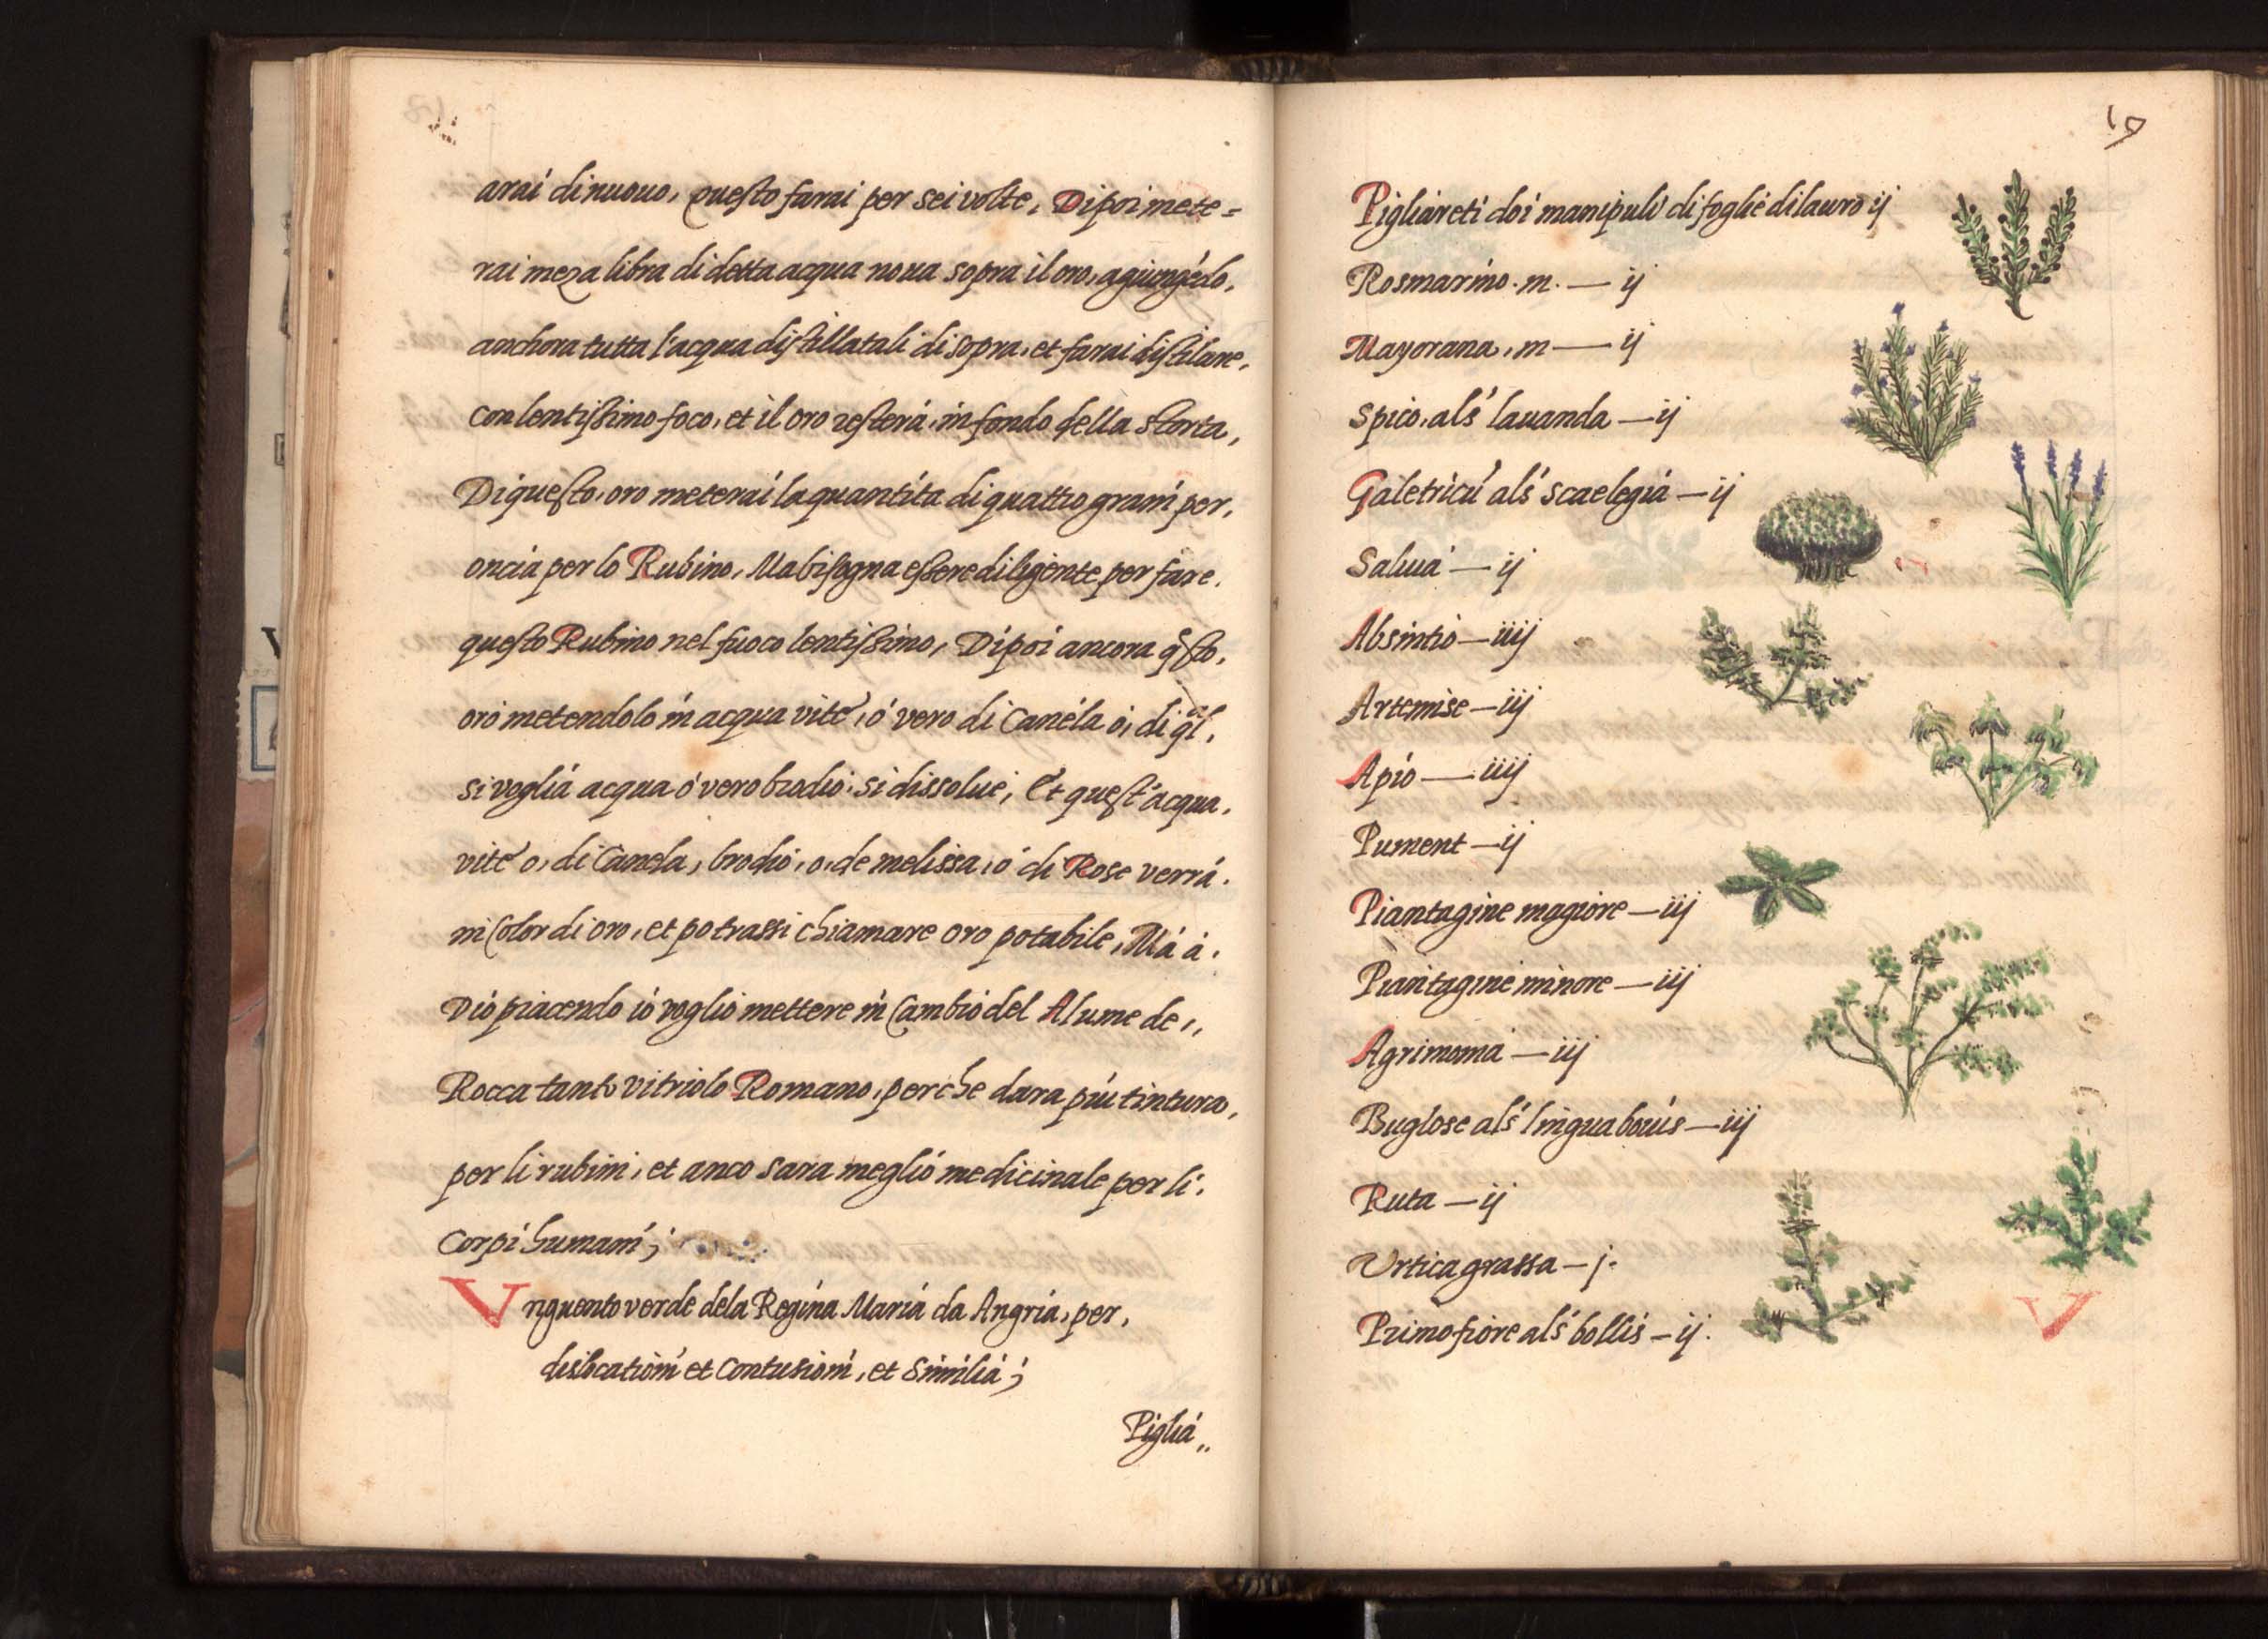 arai di nuouo, questo farai per sei volte, Dipoi mete=
rai meza libra di detta acqua noua sopra il oro, agiungēdo,
anchora tutta l'acqua distillatali di sopra, et farai distilare,
con lentissimo foco, et il oro resterá in fondo della storta,
Di questo oro meterai la quantita di quattro grani per,
oncia per lo Rubino, Ma bisogna essere diligente per fare,
questo Rubino nel fuoco lentissimo, Dipoi ancora q̃sto,
oro metendolo in acqua vite, ó vero di Canéla ó, di q̃l,
si voglia acqua ó vero brodio, si dissolue, Et quest'acqua,
vite o, di Canela, brodio, o, de melissa, ó di Rose verrá,
in Color di oro, et potrassi chiamare oro potabile, Má á,
Dio piacendo io voglio mettere in Cambio del Alume de,,
Rocca tanto vitriolo Romano, perche dara piu tintura,
per li rubini, et anco sara meglio medicinale per li,
Corpi humani;
Vnguento verde dela Regina Maria da Angria, per,
dislocationi et Contusioni, et Similia;
Piglia,,
19
Pigliareti doi manipuli di foglie di lauro ij
Rosmarino. m. — ij
Mayorana, m — ij
Spico, als' lauanda — ij
Galetricū als' scaelegia — ij
Saluia — ij
Absintio — iiij
Artemise — iij
Apio — iiij
Pument — ij
Piantagine magiore — iij
Piantagine minore — iij
Agrimonia — iij
Buglose als' lingua bouis — iij
Ruta — ij
Vrtica grassa — j.
Primo fiore als' bollis — ij.
V